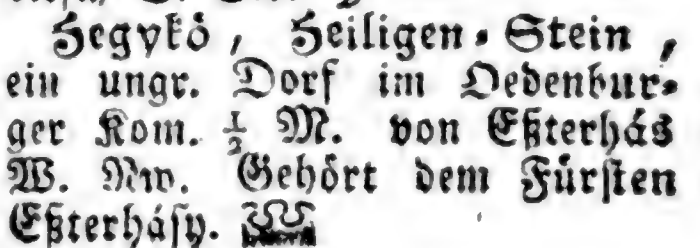 Hegykö, Heiligen-Stein,
ein ungr. Dorf im Oedenbur-
ger Kom. ½ M. von Eßterhás
W. Nw. Gehört dem Fürsten
Eßterhásy.